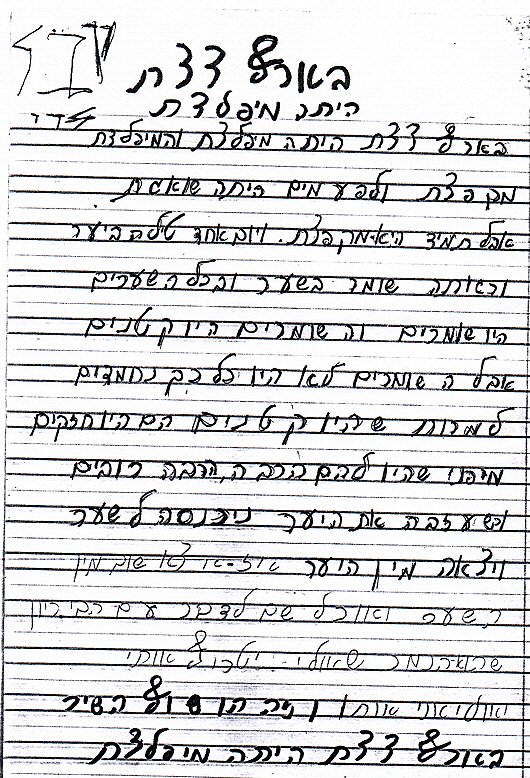 בארץ דדת
היתה מיפלצת
בארץ דדת היתה מיפלצת והמיפלצת
מקפצת ולפעמים היתה שואגת
אבל תמיד היא מקפצת. ויום אחד טילה ביער
וראתה שומר בשער ובכל השערים
היו שומרים וה שומרים היו קטנים
אבל ה שומרים לא היו כל כך נחמדים
למרות שהיו קטנים הם היו חזקים
מיפני שהיו להם הרבה, הרבה רובים
וכשעזבה את היער ניכנסה לשער
ויצאה מין היער שוב מין
השער שם לדבר עם
שהוא נמר יטרוף אותי
וזה הסוף השיר
בארץ דדת היתה מיפלצת